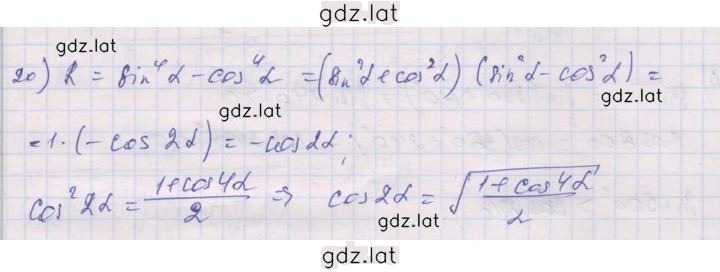 gdz.lat
gdz.lat
20) R = sin⁴α - cos⁴α = (sin²α + cos²α) (sin²α - cos²α) =
gdz.lat gdz.lat
= 1 · (- cos 2α) = - cos 2α;
cos² 2α = (1 + cos 4α)/2 ⇒ cos 2α = √((1 + cos 4α)/2)
gdz.lat
gdz.lat